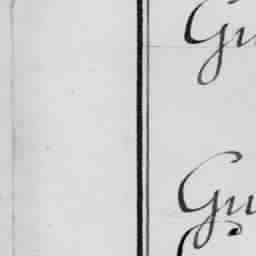 Gu
Gu